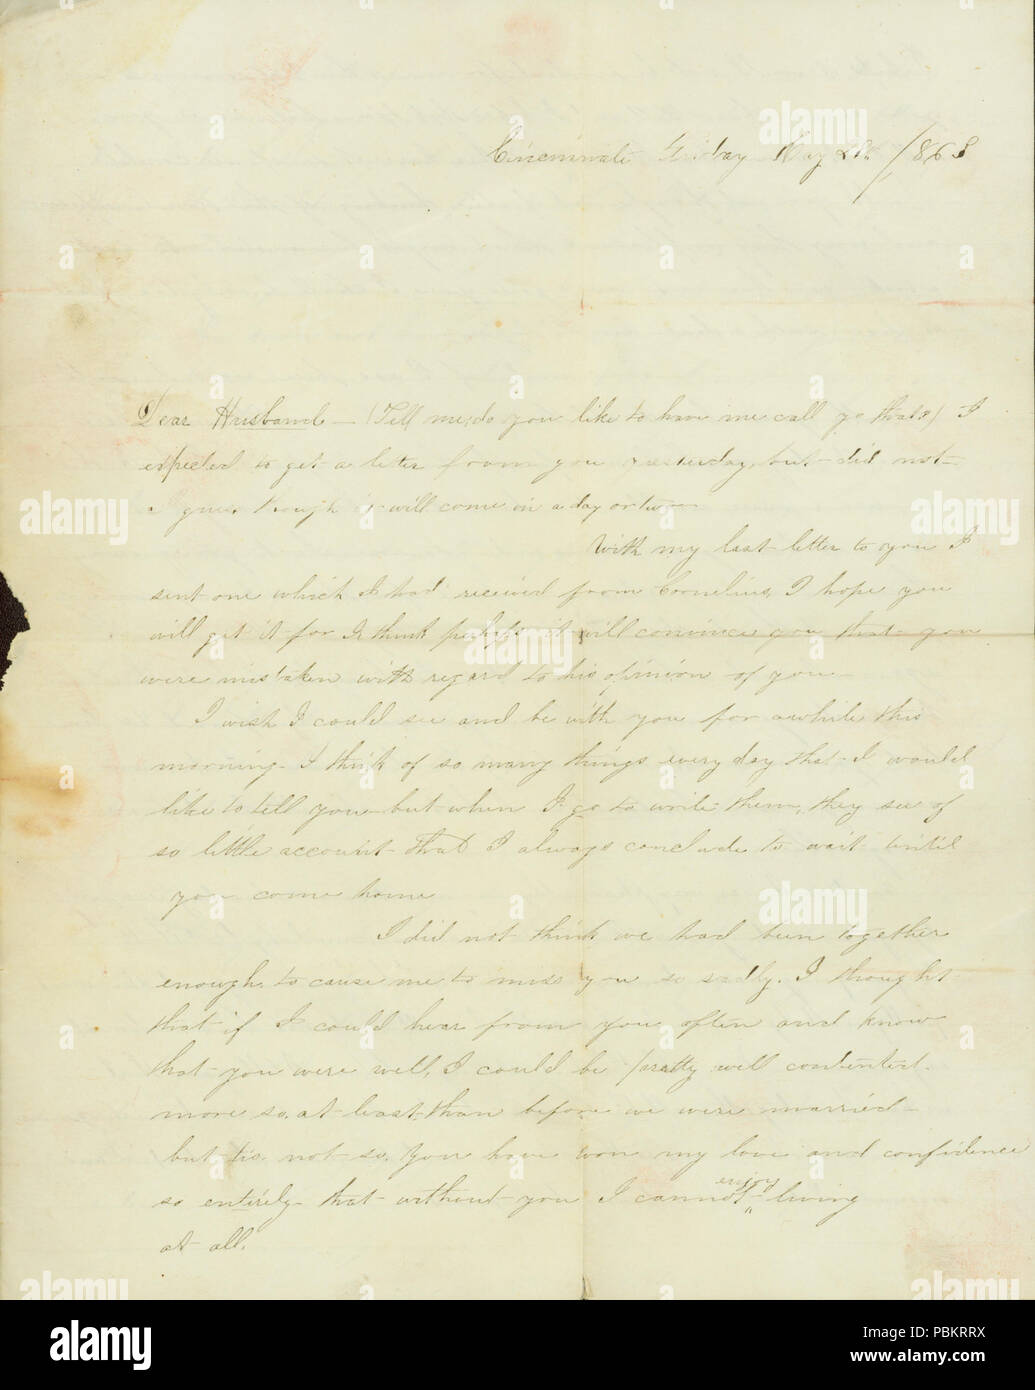 Cincinnati Friday May 1863
Dear Husband — (Tell me, do you like to have me call yo that?) I
expected to get a letter from you yesterday, but did not
I guess though it will come in a day or two —
With my last letter to you I
sent one which I had received from Cornelius, I hope you
will get it for I think perhaps it will convince you that you
were mistaken with regard to his opinion of you —
I wish I could see and be with you for awhile this
morning. I think of so many things every day that I would
like to tell you but when I go to write them, they see of
so little account that I always conclude to wait until
you come home
I did not think we had been together
enough, to cause me to miss you so sadly. I thought
that if I could hear from you often and know
that you were well, I could be pretty well contented.
more so, at least, than before we were married —
but tis not so. You have won my love and confidence
so entirely that without you I cannot enjoy living
at all.
alamy
a
alamy stock photo
Image ID: PBKRRX
www.alamy.com